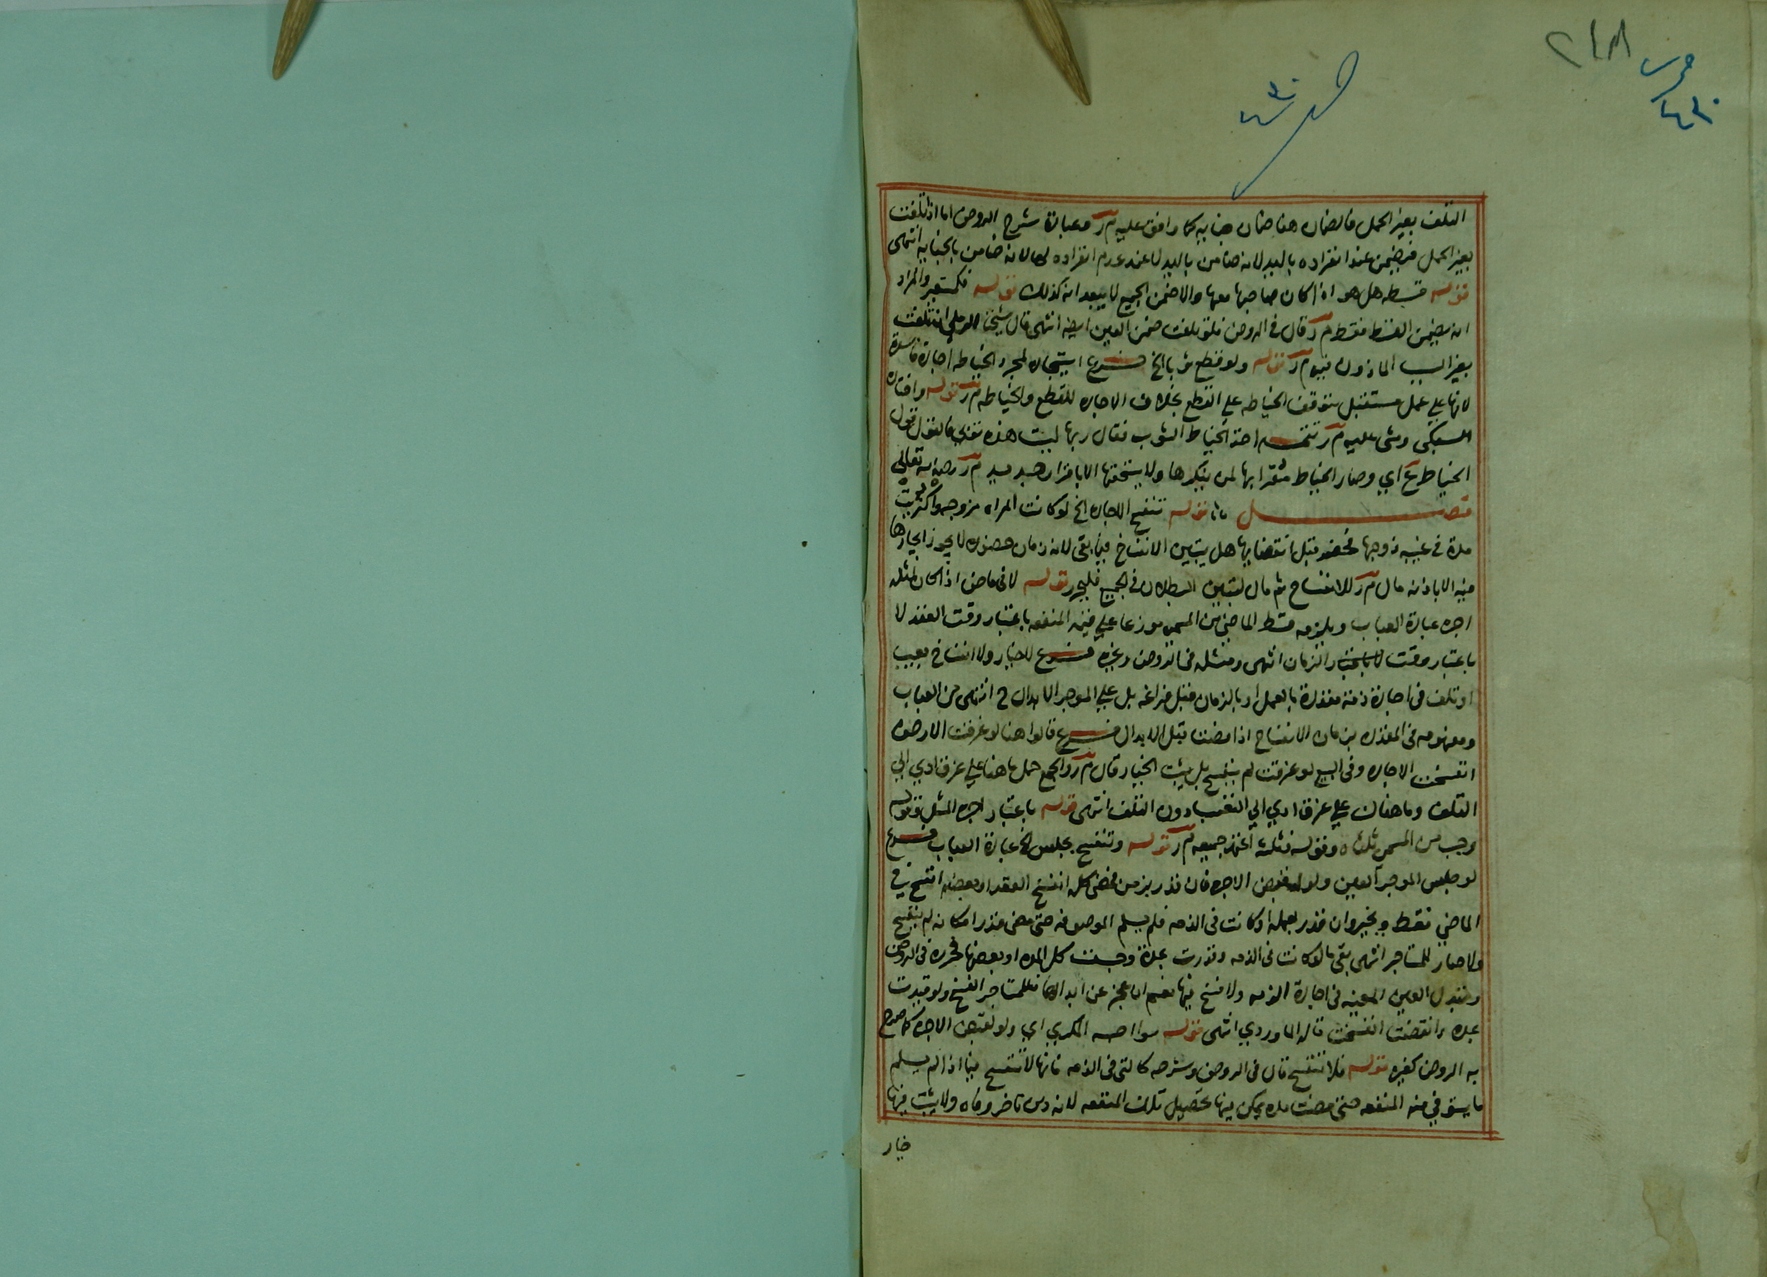 ٢١٨
٤٣٠
التلف بغير الحمل فالضمان هنا ضمان جنايه كما وافق عليه م ر وعبارة شرح الروض اما اذا تلفت
بغير الحمل فيضمن عند انفراده باليد لانه ضامن باليد لا عند عدم انفراده بها لانه ضامن بالجنايه انتهى
قوله قسطه هل هو اذا كان صاحبها معها والا ضمن الجميع لا يبعد انه كذلك قوله والمراد
انه يضمن القسط فقط م ر قال في الروض فلو تلفت ضمن انتهى قال شيخنا الرملي ان تلفت
بغير السبب الماذون فيه م ر قوله ولو قطع ثوبا الخ فرع استيجاره لمجرد الخياطه اجارة فاسدة
لانها على عمل مستقبل يتوقف الخياطه على القطع بخلاف الاجاره للقطع والخياطه م ر قوله وافتاه
السبكي ومشى عليه م ر تتمه احضر الخياط الثوب فقال ربها ليست هذه ثوبي فالقول قول
الخياط ع اي وصار الخياط مقرا بها لمن ينكرها ولا يستحقها الا باقرار جديد م ر رحمه الله تعالى
فصل قوله تنفسخ الاجاره الخ لو كانت المراه مزوجه واكريت
مدة في غيبه زوجها فحضر قبل انقضايها هل يتبين الانفساخ فيما بقى لانه زمان حضوره لا يجوز ايجارها
فيه الا باذنه مال م ر للانفساخ ثم مال لتبين البطلان في الجميع فليحرر قوله لا في ماض اذا كان لمثله
اجره عبارة العباب ويلزمه قسط الماضي من المسمى موزعا على قيمه المنفعه باعتبار وقت العقد لا
باعتبار وقت الخيار انتهى ومثله في الروض وغيره فرع لا خيار ولا انفساخ بعيب
او تلف في اجارة ذمة مقدرة بالعمل او بالزمان قبل فراغه بل على الموجر الابدال انتهى من العباب
ومفهومه في المقدره بزمان الانفساخ اذا مضت قبل الابدال فرع قالوا هنا لو غرقت الارض
انفسخت الاجاره وفي البيع لو غرقت لم ينفسخ بل يثبت الخيار قال م ر والجمع حمل ما هنا على غرق ادي الى
التلف وما هناك على غرق ادي الي التعيب دون التلف انتهى قوله باعتبار اجره المثل وقوله
وجب من المسمى ثلثاه وقوله فثلثه اعتمد جميعه م ر قوله وتنفسخ بحبس الخ عبارة العباب فرع
لو حبس الموجر العين ولو لقبض الاجره فان قدر بزمن فمضى كله انفسخ العقد او بعضه انفسخ في
الماضي فقط ويخير وان قدر بعمل او كانت في الذمه فلم يسلم الموصوفه حتى مضى قدر امكانه لم ينفسخ
ولا خيار للمستاجر انتهى بقي ما لو كانت في الذمه وقدرت بمدة وحبست كل المده او بعضها فحرره في الروض
وتبدل العين المعينه في اجارة الذمه ولا فسخ فيها نعم ان عجز عن ابدالها فللمستاجر الفسخ ولو قيدت
بمده وانقضت انفسخت قاله الماوردي انتهى قوله سوا حبسه المكري اي ولو لقبض الاجره كما صرح
به الروض كغيره قوله فلا تنفسخ قال في الروض وشرحه كالتي في الذمه فانها لا تنفسخ فيما اذا لم يسلم
ما يستوفي منه المنفعه حتى مضت مده يمكن فيها تحصيل تلك المنفعه لانه دين تاخر وفاه ولا يثبت فيها
خيار